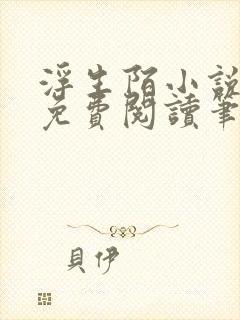 浮生陌小說
免費閱讀筆
貝伊